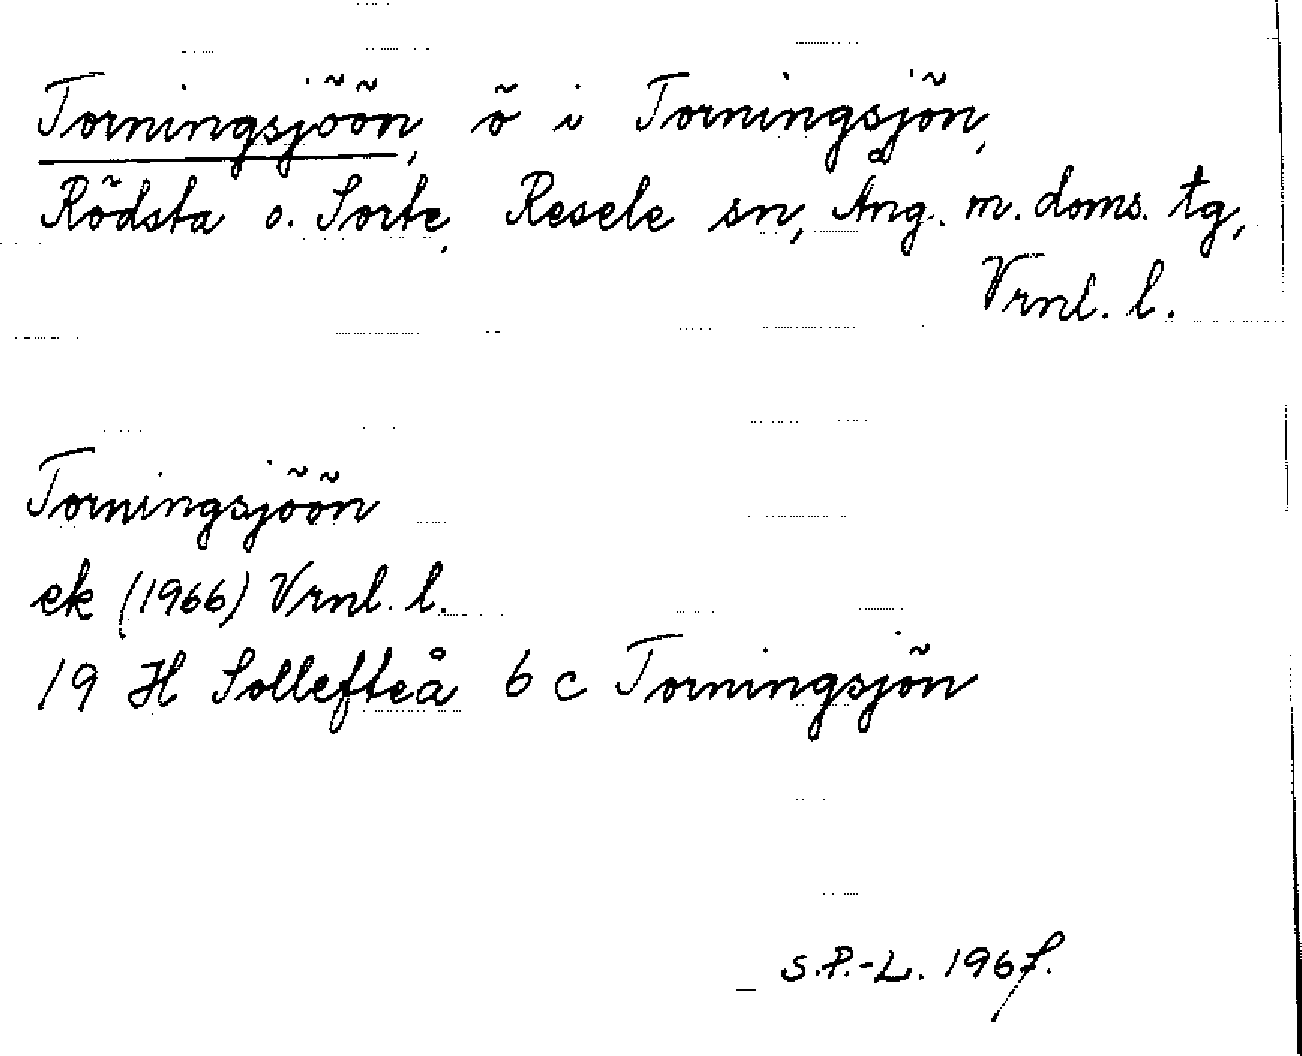 Torningsjöön, ö i Torningsjön,
Rödsta o. Sorte, Resele sn, Ång. m. doms. tg,
Vrnl. l.
Torningsjöön
ek (1966) Vrnl. l.
19 H Sollefteå 6 c Torningsjön
S.P.-L. 1967.